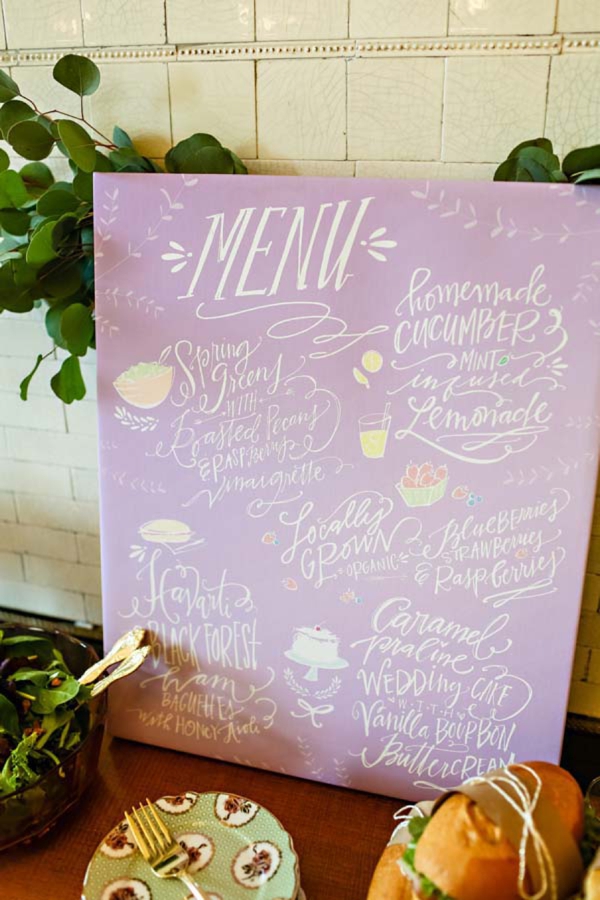 MENU
Spring
Greens
WITH
Roasted Pecans
& RASPBERRY
Vinaigrette
homemade
CUCUMBER
MINT
infused
Lemonade
Locally
GROWN
ORGANIC
BlueBERRIES
STRAWBERRIES
& RaspBerries
Havarti &
BLACK FOREST
ham
BAGUETTES
with HONEY Aioli
Caramel
praline
WEDDING CAKE
WITH
Vanilla BOURBON
ButterCREAM